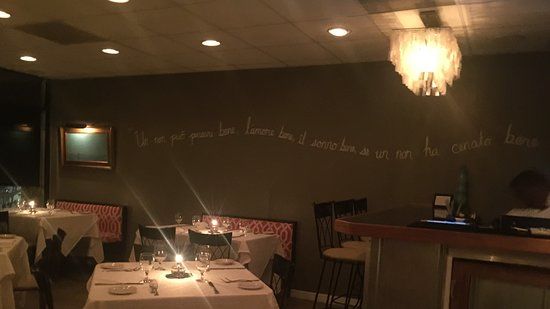 Un non può pensare bene, l'amore bene, il sonno bene, se un non ha cenato bene